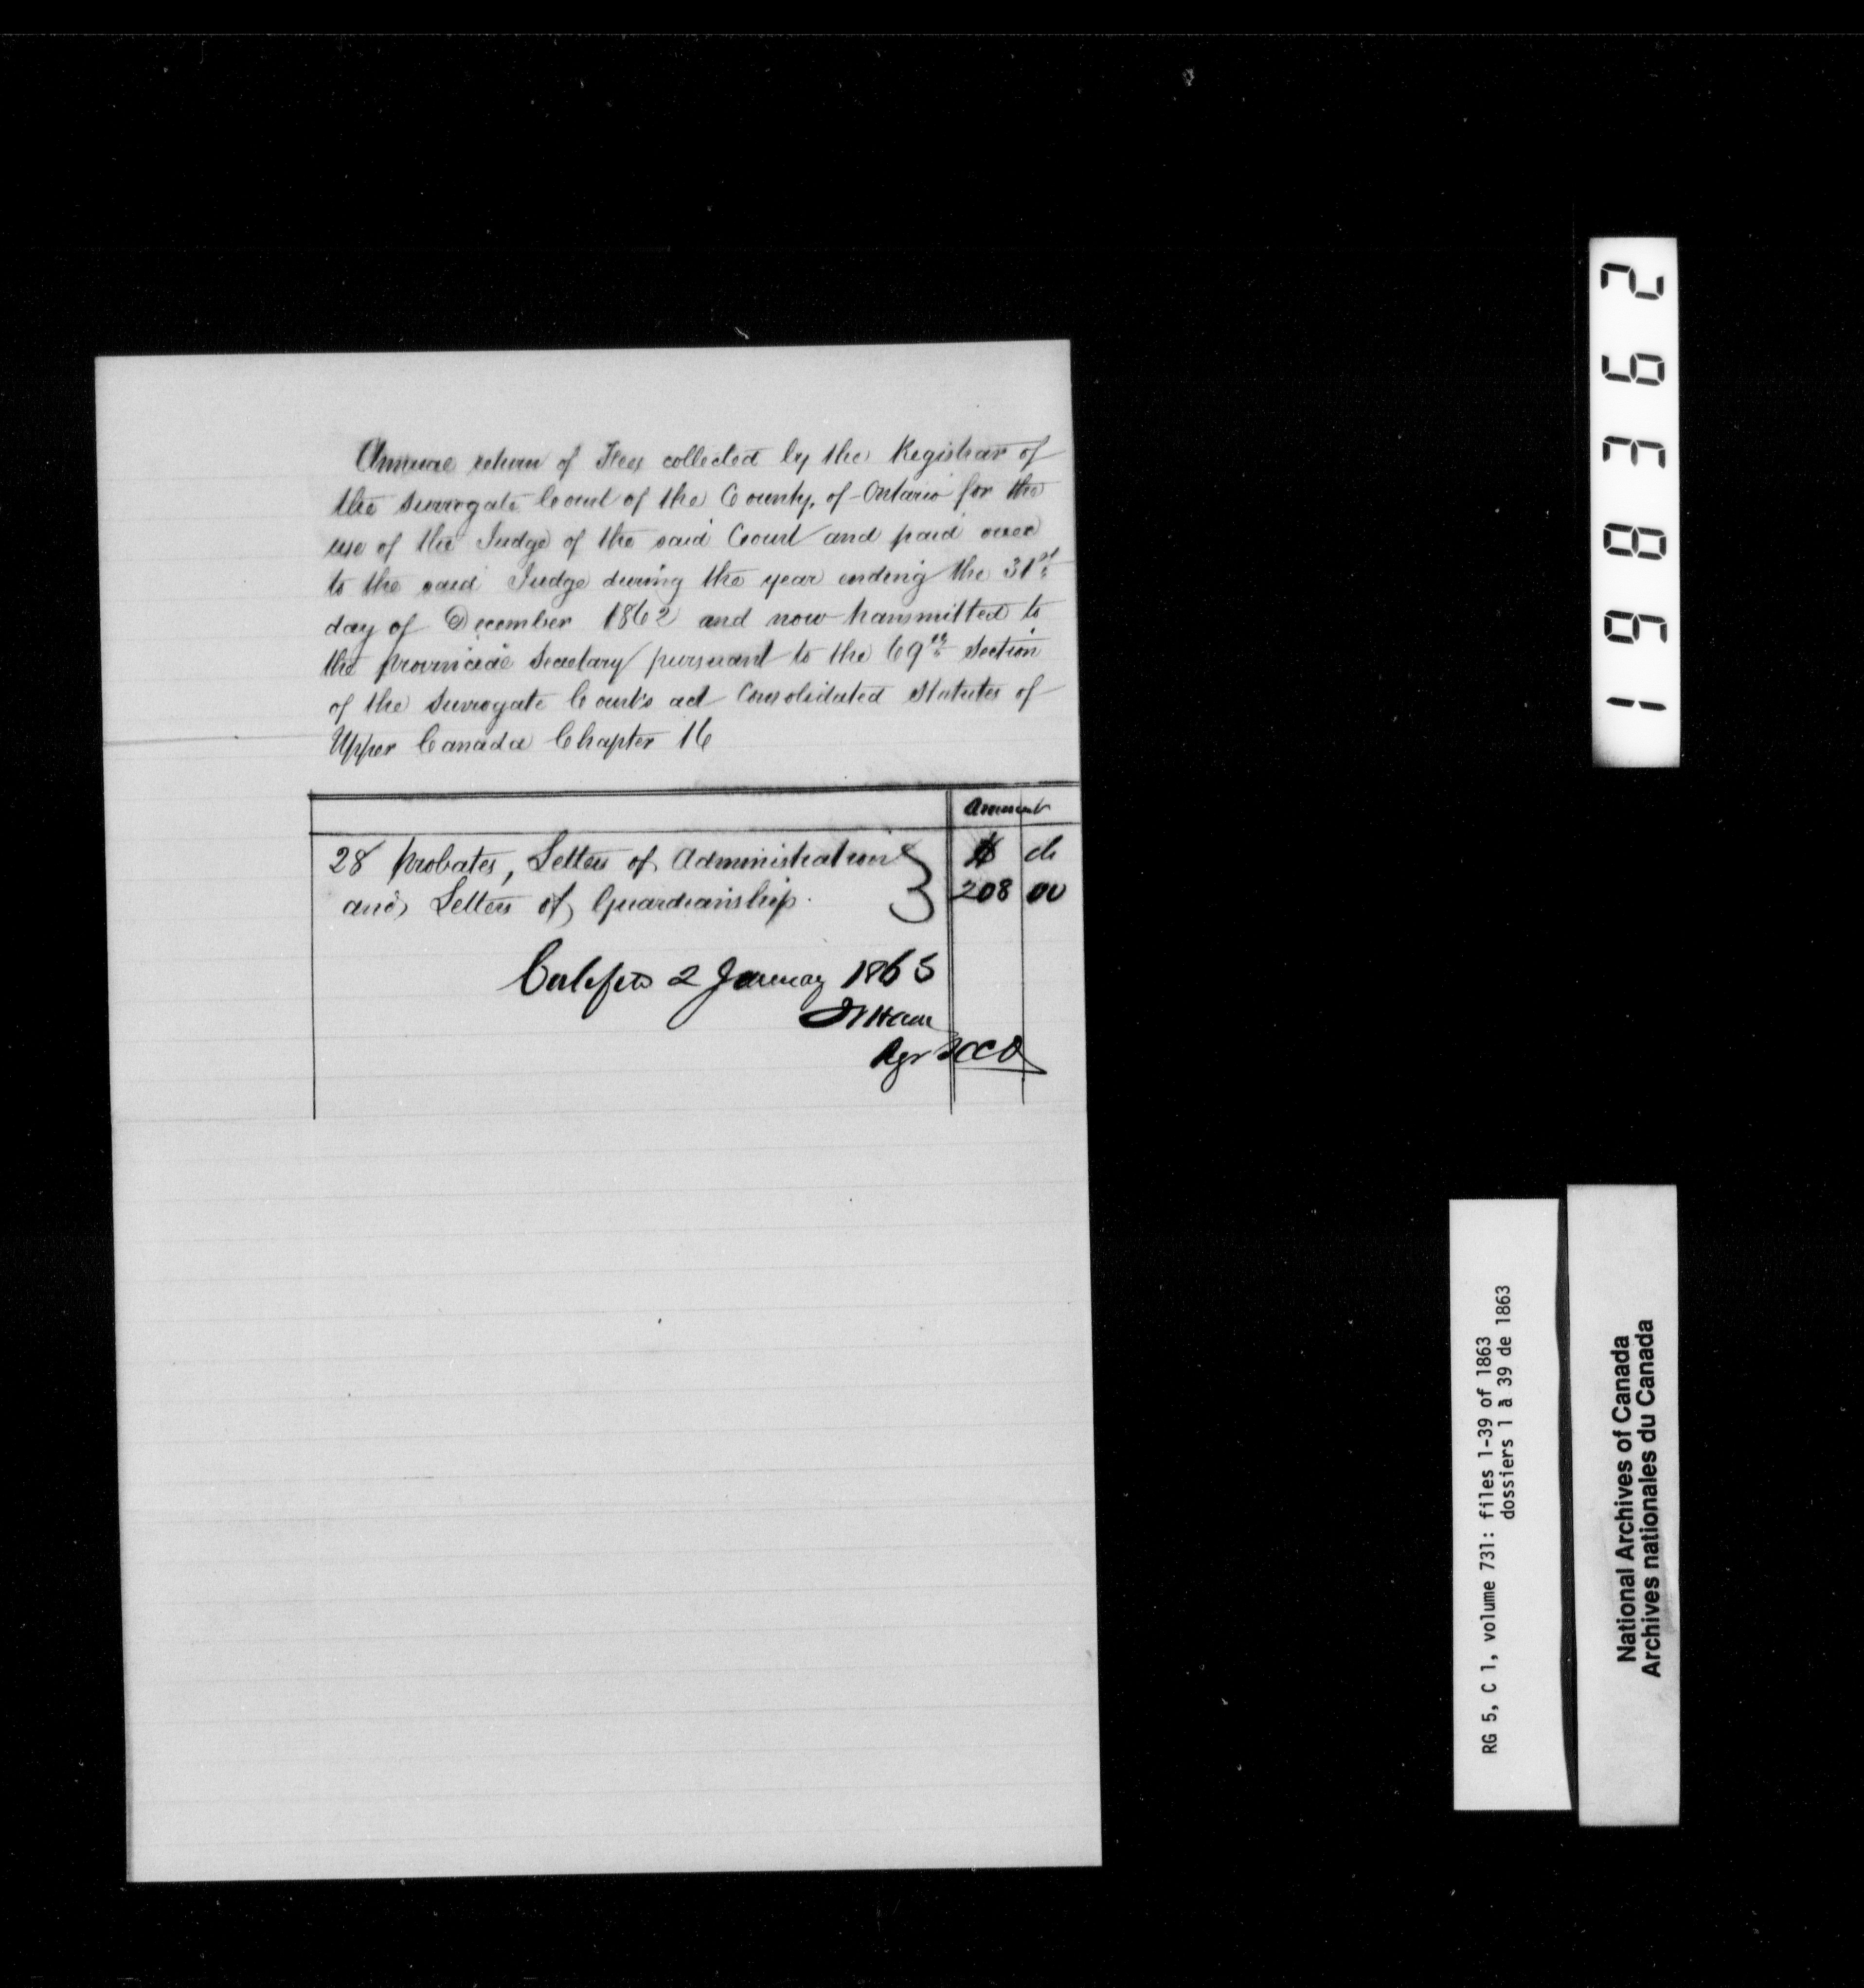 Annual return of Fees collected by the Registrar of
the Surrogate Court of the County of Ontario for the
use of the Judge of the said Court and paid over
to the said Judge during the year ending the 31st
day of December 1862 and now transmitted to
the Provincial Secretary pursuant to the 69th Section
of the Surrogate Courts act Consolidated Statutes of
Upper Canada Chapter 16
Amount
$ cts
28 Probates, Letters of Administration
and Letters of Guardianship.
208 00
2 January 1863
Ham
Rgr SCCO
198362
RG 5, C 1, volume 731: files 1-39 of 1863
dossiers 1 à 39 de 1863
National Archives of Canada
Archives nationales du Canada